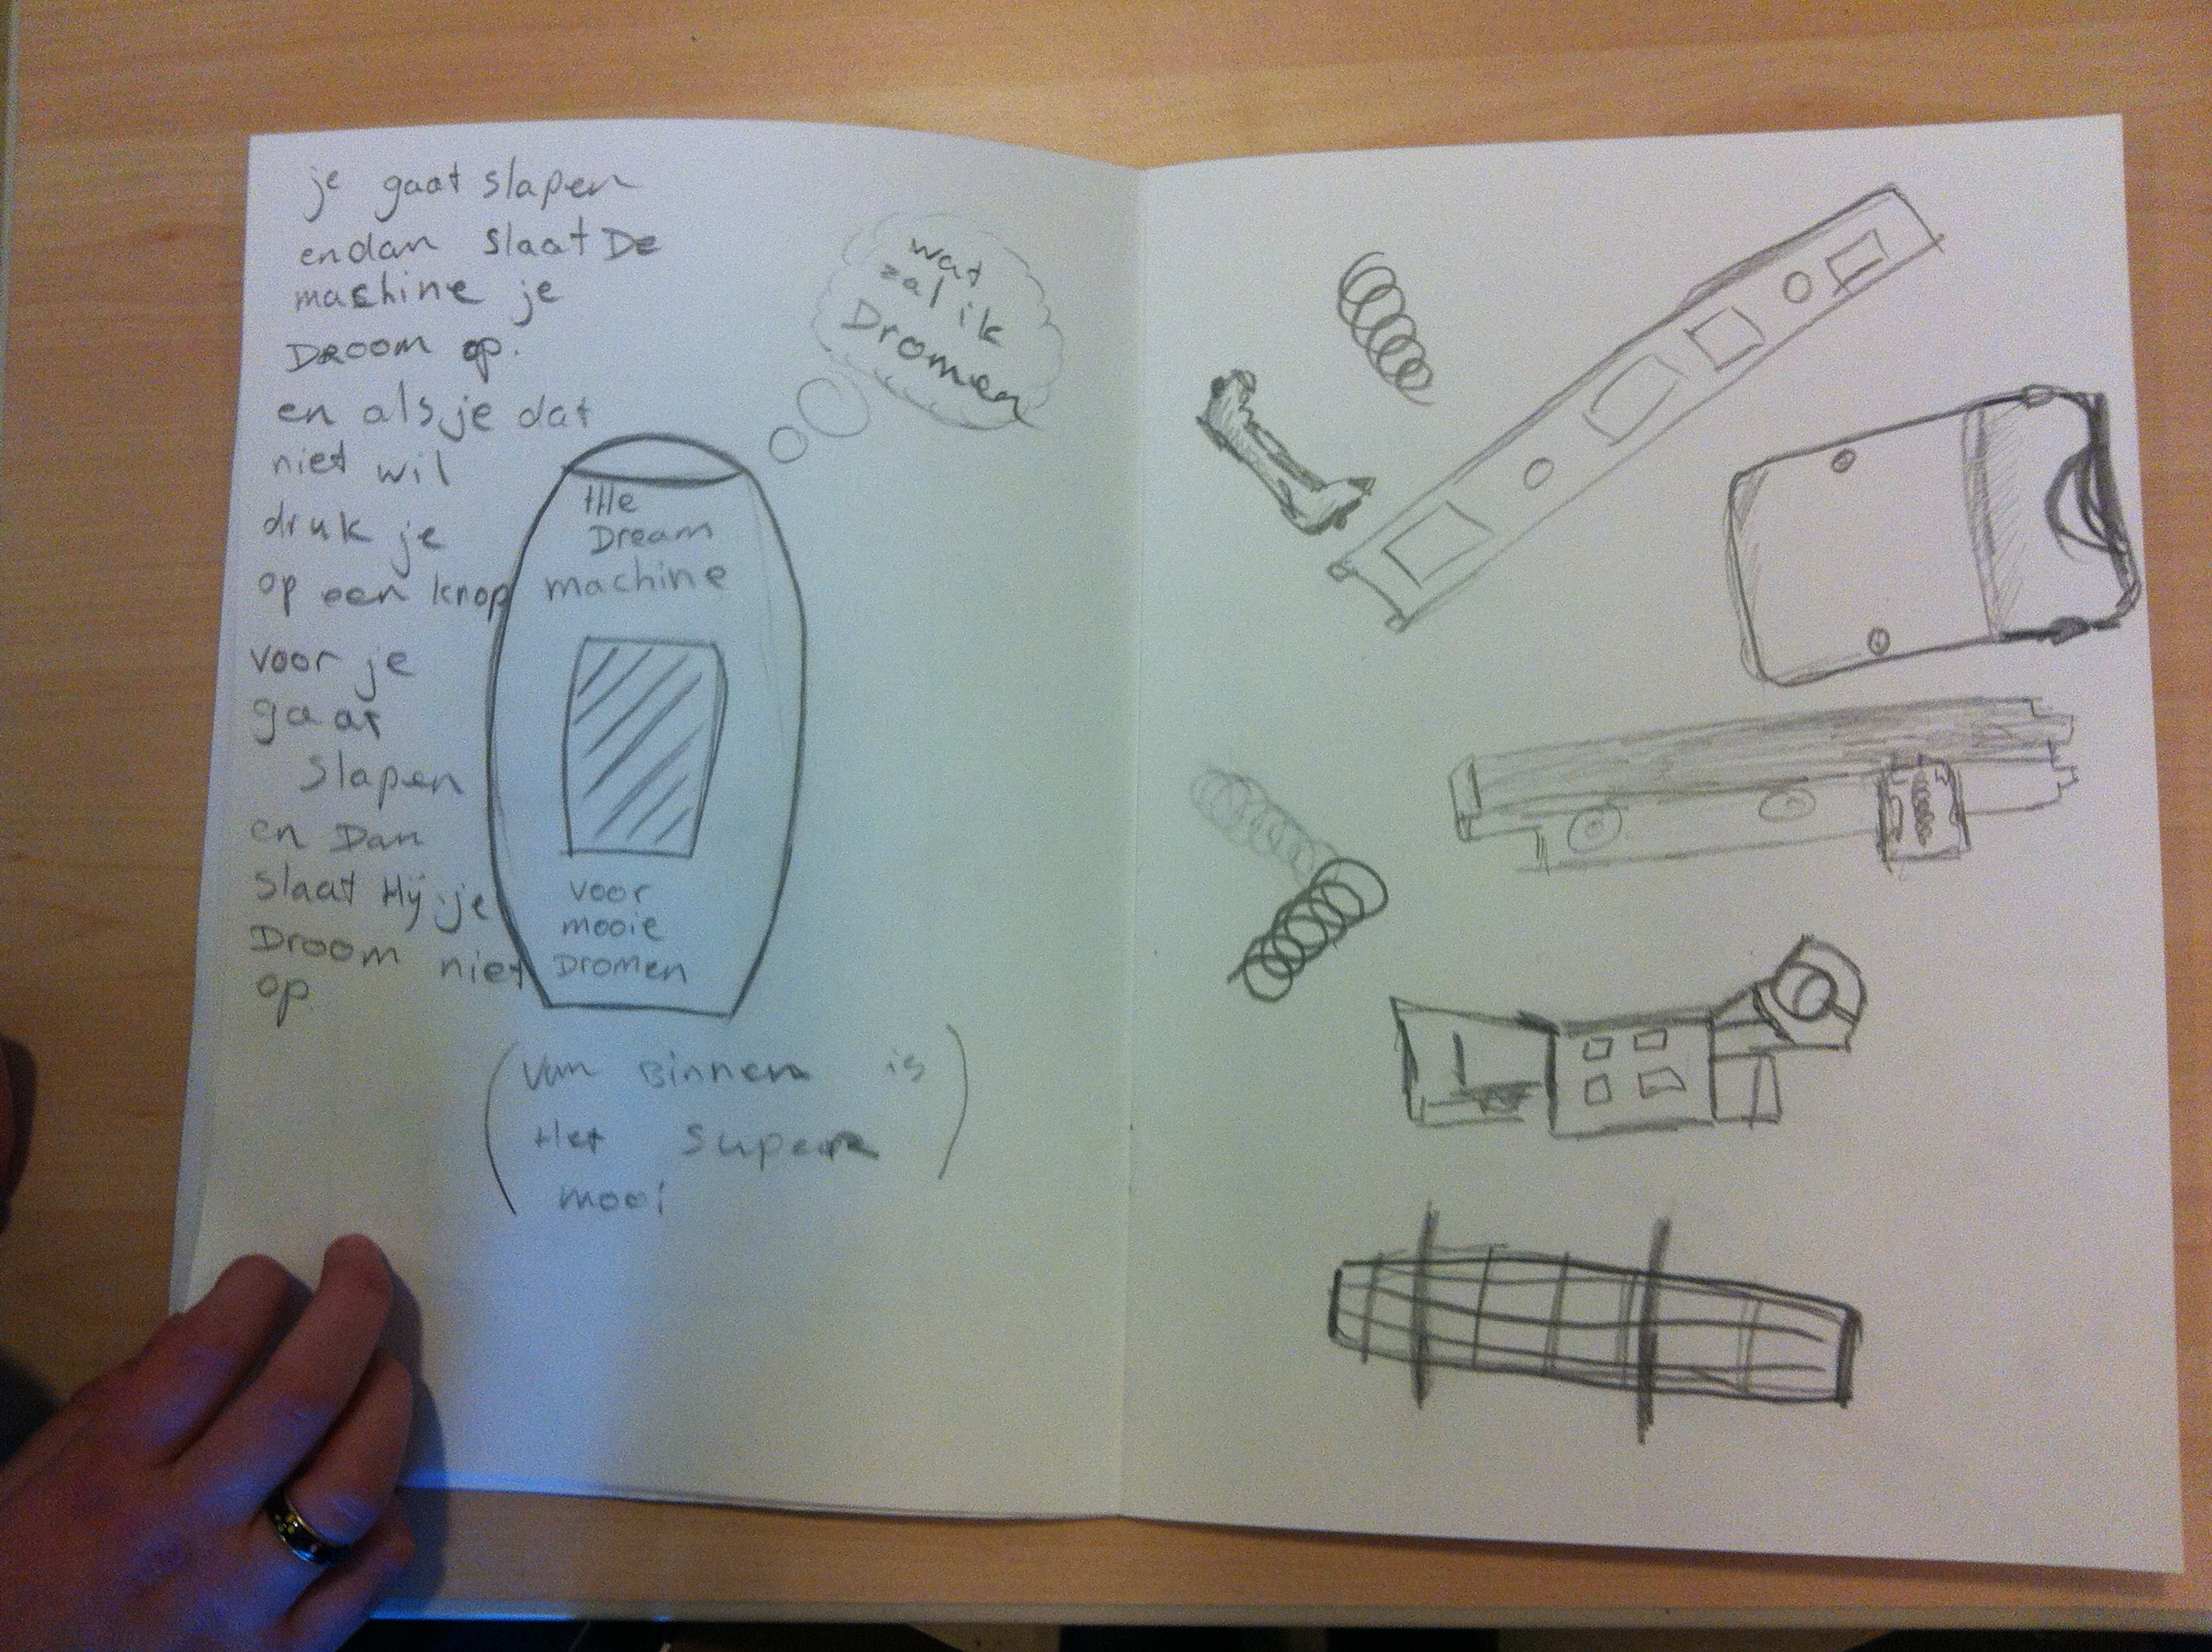 je gaat slapen
endan slaat De
machine je
DROOM op.
en als je dat
niet wil
druk je
op een knop
voor je
gaat
slapen
en Dan
slaat Hij je
Droom niet
op
wat
zal ik
Dromen
tHe
Dream
machine
voor
mooie
DROMEN
(Van Binnen is
Het super
mooi)